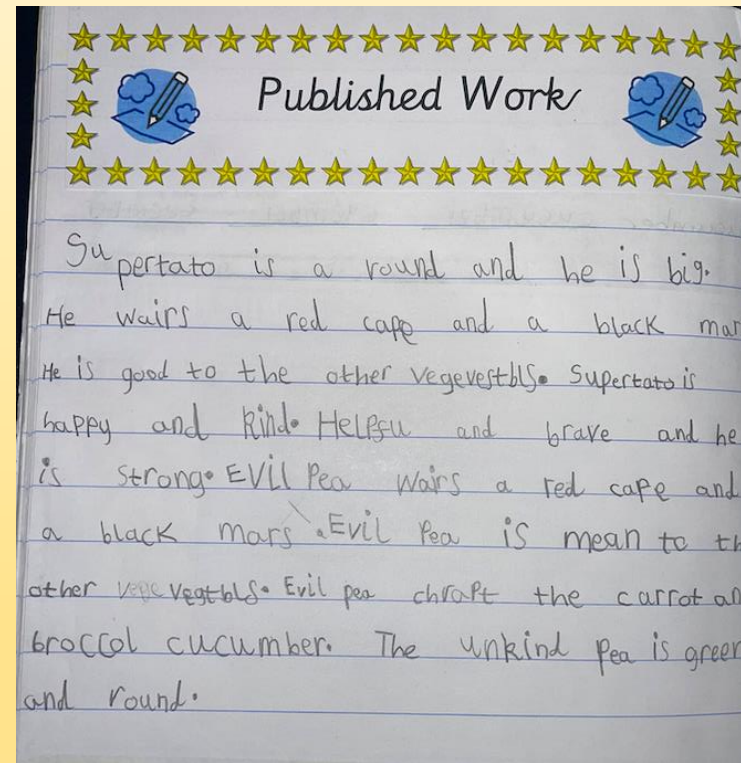 Published Work
Supertato is a round and he is big.
He wairs a red cape and a black mar
He is good to the other vegevestbls. Supertato is
happy and kind. Helpfu and brave and he
is strong. Evil Pea wairs a red cape and
a black mars. Evil Pea is mean to th
other vege vegtbls. Evil pea chrapt the carrot an
broccol cucumber. The unkind Pea is green
and round.